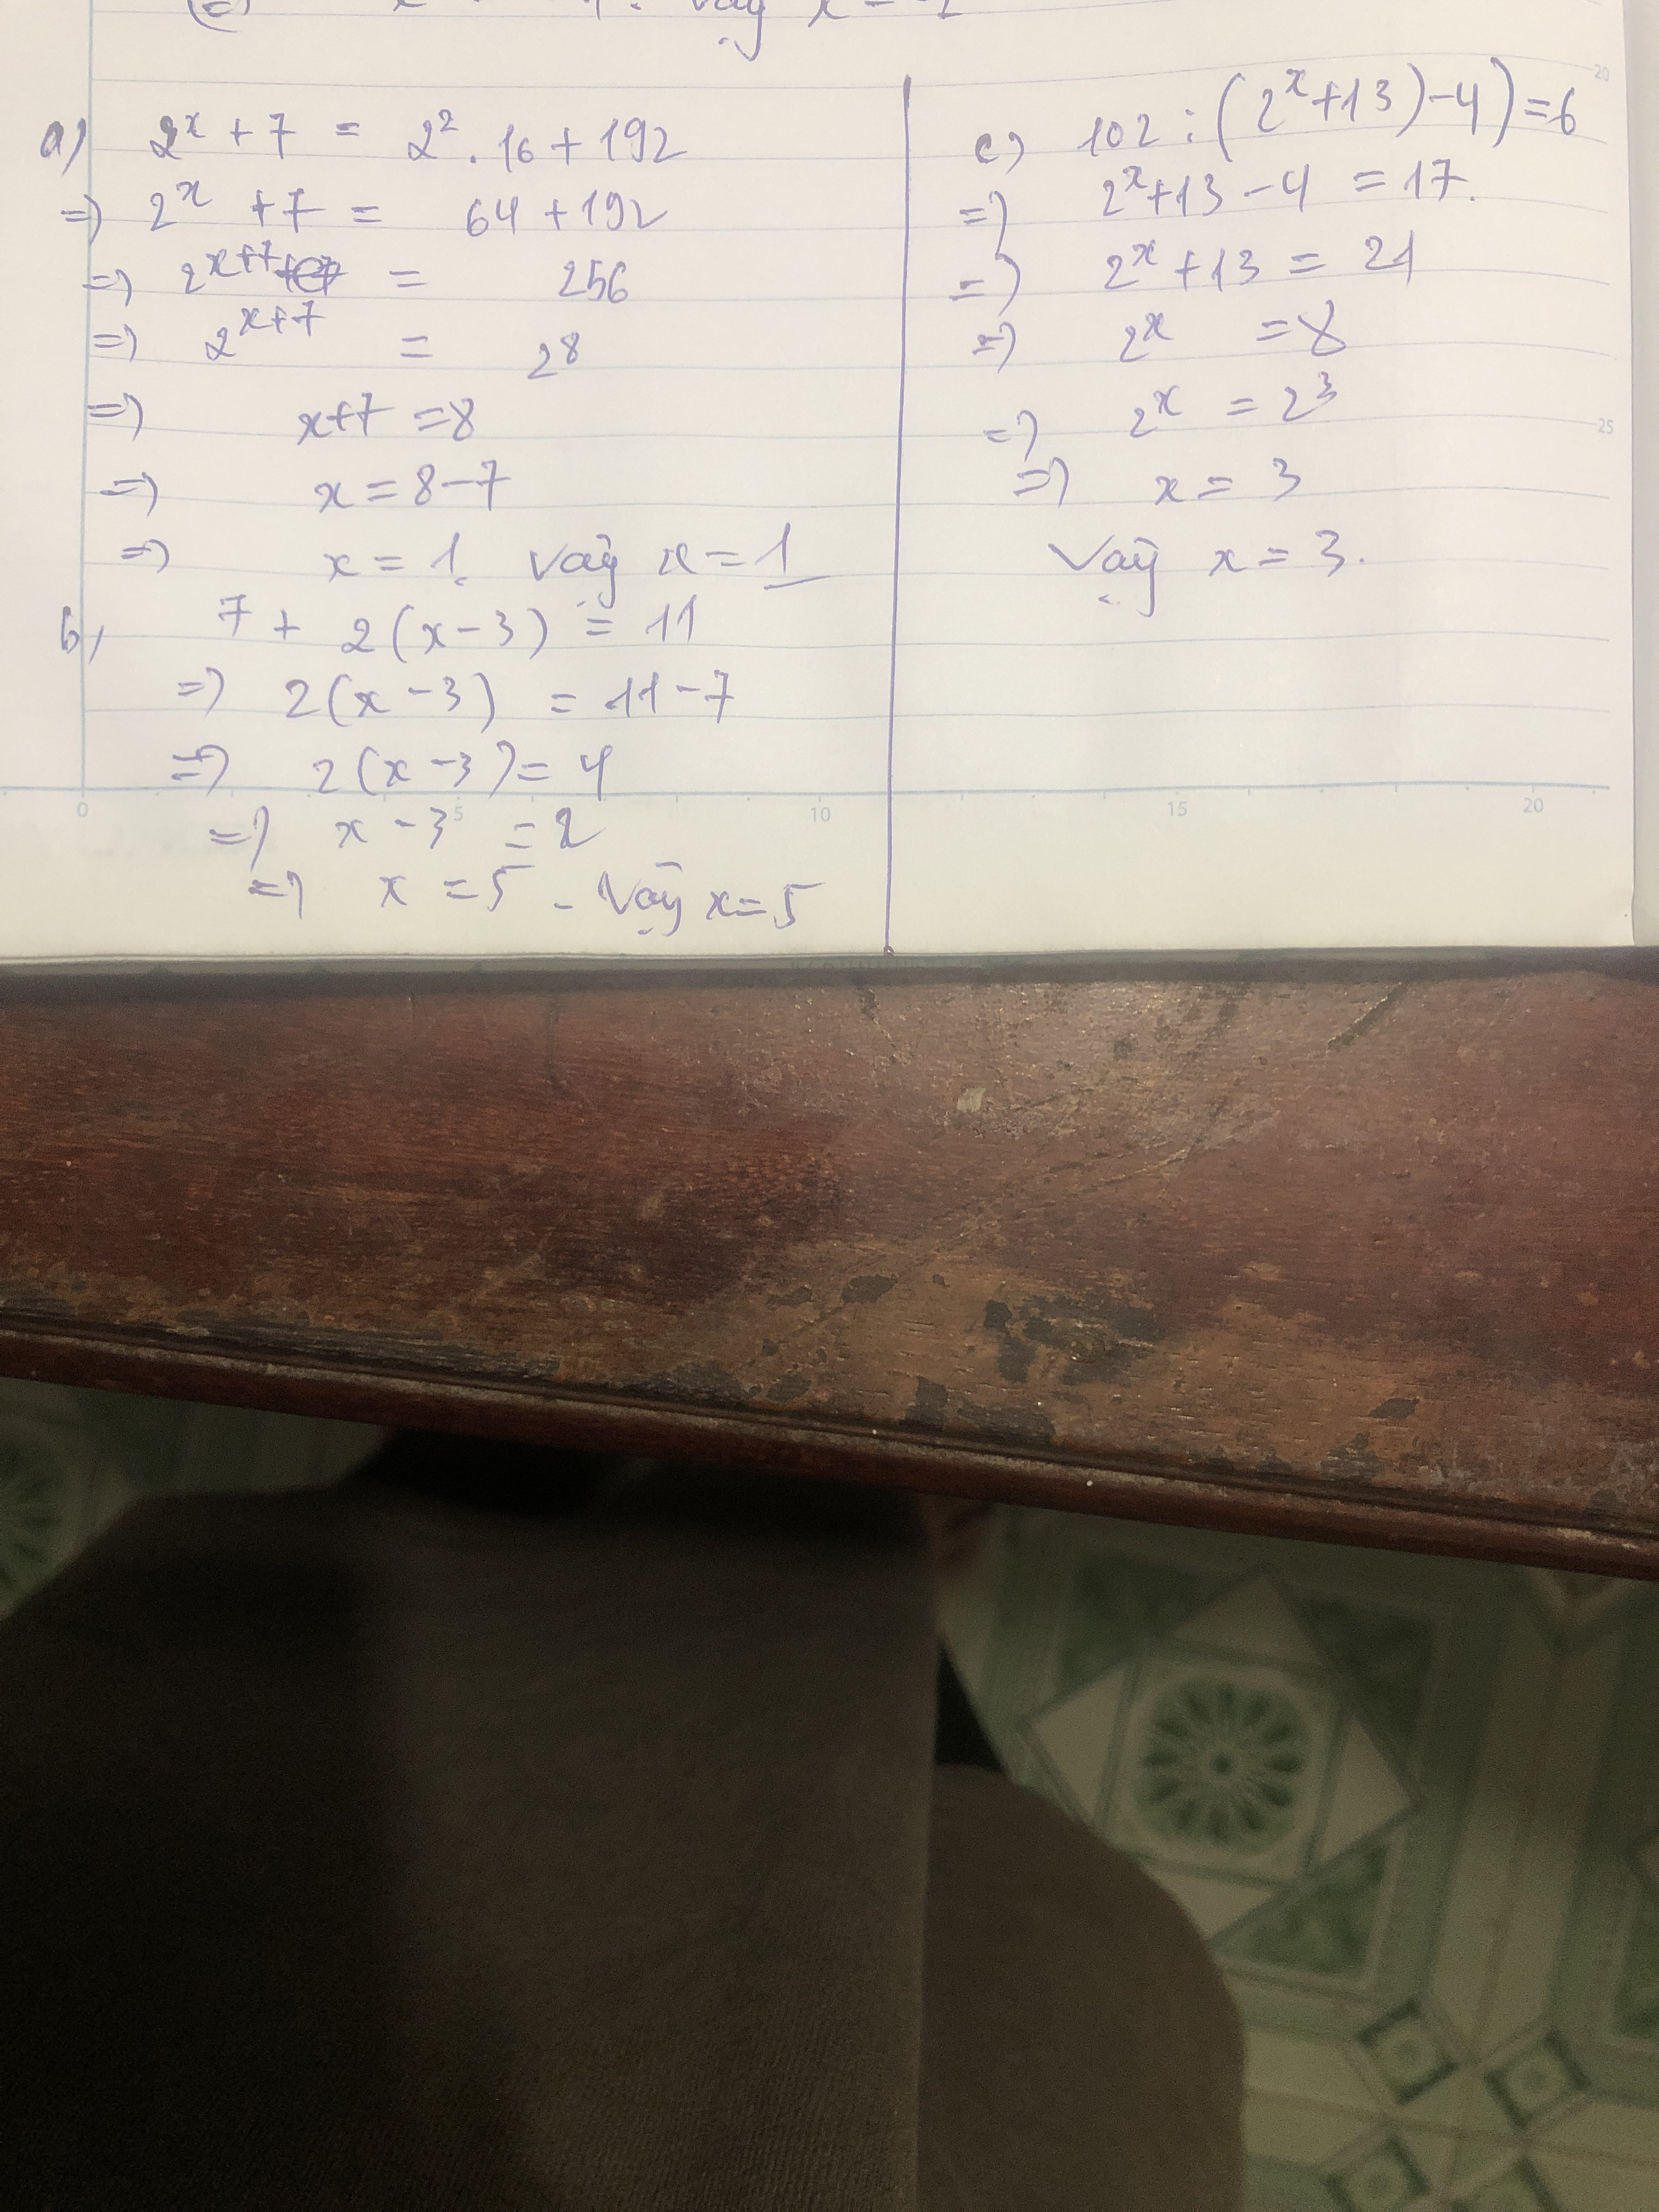 a) 2ˣ + 7 = 2² . 16 + 192
=> 2ˣ + 7 = 64 + 192
=> 2ˣ⁺⁷ = 256
=> 2ˣ⁺⁷ = 2⁸
=> x+7 = 8
=> x = 8 - 7
=> x = 1. Vậy x = 1
b, 7 + 2(x - 3) = 11
=> 2(x - 3) = 11 - 7
=> 2(x - 3) = 4
=> x - 3 = 2
=> x = 5 - Vậy x = 5
c) 102 : (2ˣ + 13) - 4) = 6
=> 2ˣ + 13 - 4 = 17.
=> 2ˣ + 13 = 21
=> 2ˣ = 8
=> 2ˣ = 2³
=> x = 3
Vậy x = 3.
20
25
0 5 10 15 20